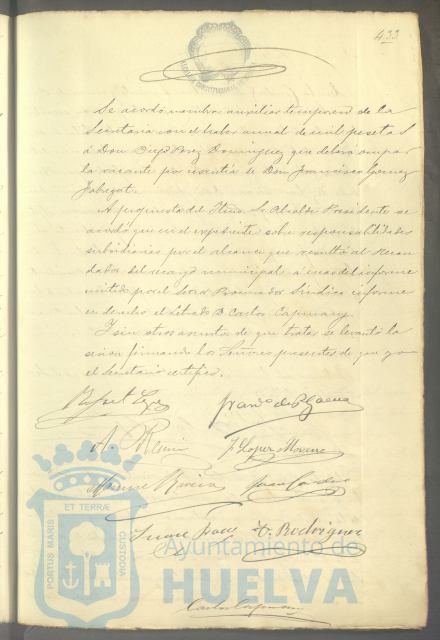 433
Se acordó nombrar auxiliar temporero de la
Secretaría con el haber anual de mil pesetas
á Don Diego Perez Dominguez que deberá ocupar
la vacante por cesantía de Don Francisco Gomez
Jabugot.
A propuesta del Iltmo. Sr. Alcalde Presidente se
acordó que en el expediente sobre responsabilidades
subsidiarias por el alcance que resultó al Recau
dador del recargo municipal á mas del informe
emitido por el Señor Procurador Síndico informe
en derecho el Letrado D. Carlos Capmany.
Y sin otros asuntos de que tratar se levantó la
sesion firmando los Señores presentes de que yo
el Secretario certifico.
Franco de P.
J. Lopez Moreno
Manuel Rivera
Juan
Juan
D. Rodriguez
PORTUS MARIS ET TERRÆ CUSTODIA
Ayuntamiento de
HUELVA
Carlos Capmany